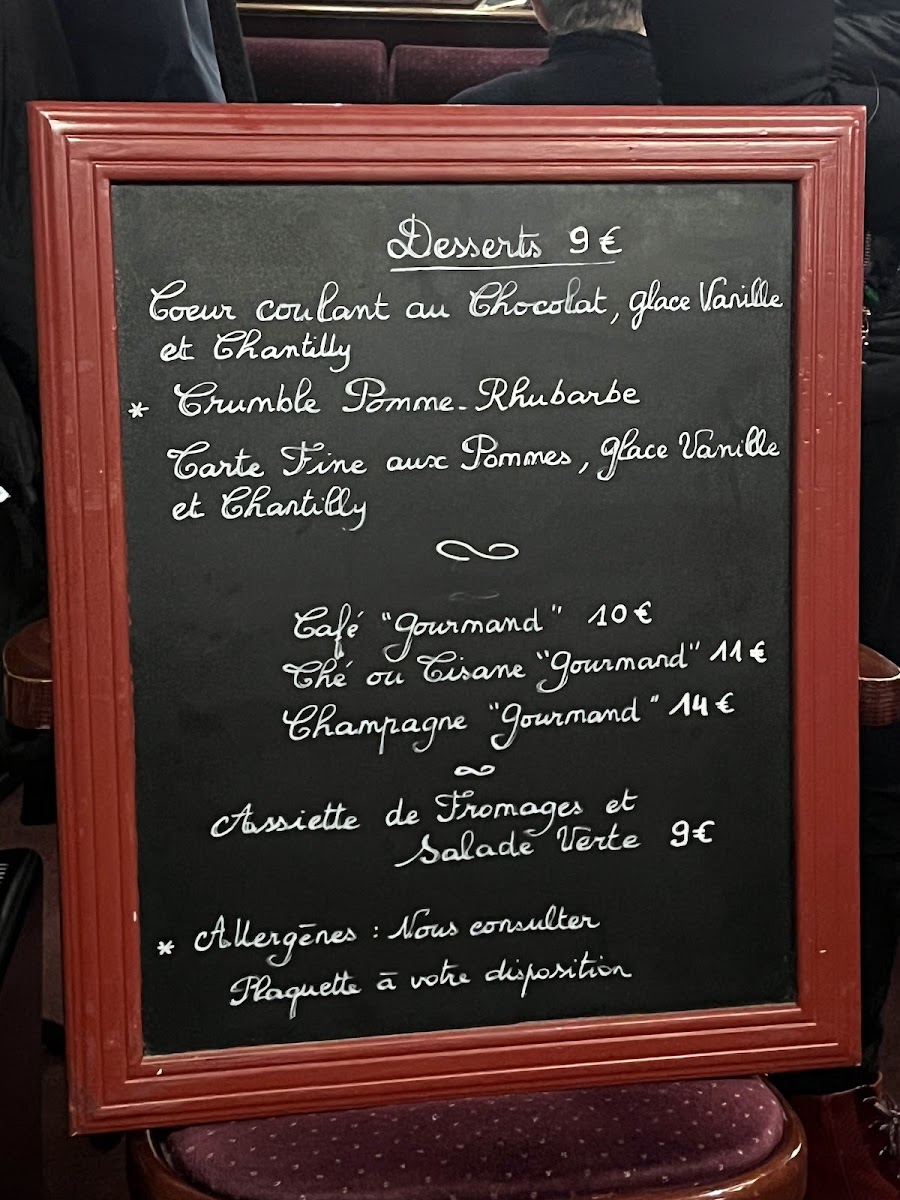 Desserts 9 €
Coeur coulant au Chocolat, glace Vanille
et Chantilly
* Crumble Pomme-Rhubarbe
Tarte Fine aux Pommes, glace Vanille
et Chantilly
Café "gourmand" 10 €
Thé ou Tisane "gourmand" 11 €
Champagne "gourmand" 14 €
Assiette de Fromages et
Salade Verte 9 €
* Allergènes : Nous consulter
Plaquette à votre disposition